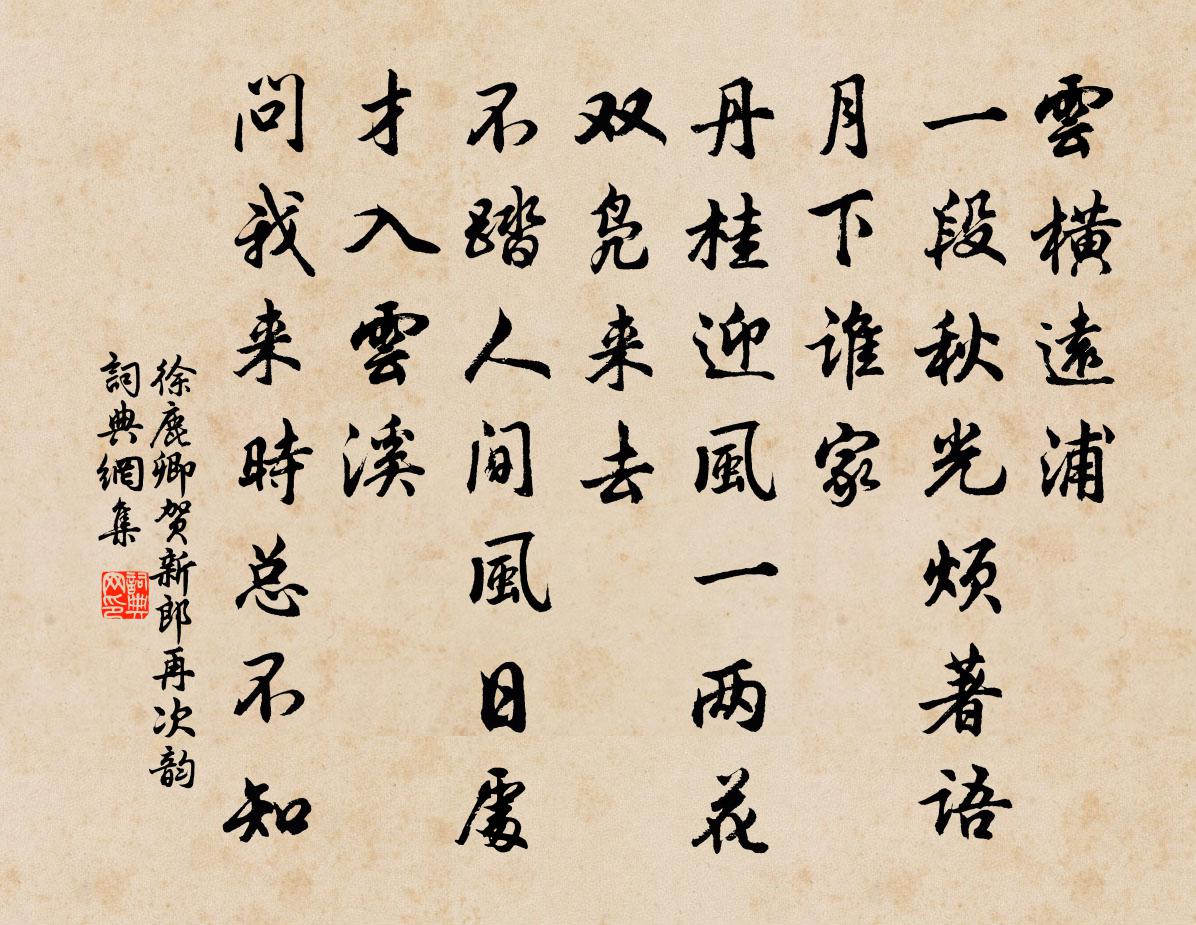 雲橫遠浦
一段秋光煩著語
月下谁家
丹桂迎風一两花
双凫来去
不踏人间風日處
才入雲溪
問我来時总不知
徐鹿卿贺新郎再次韵
詞典網集
詞典网印